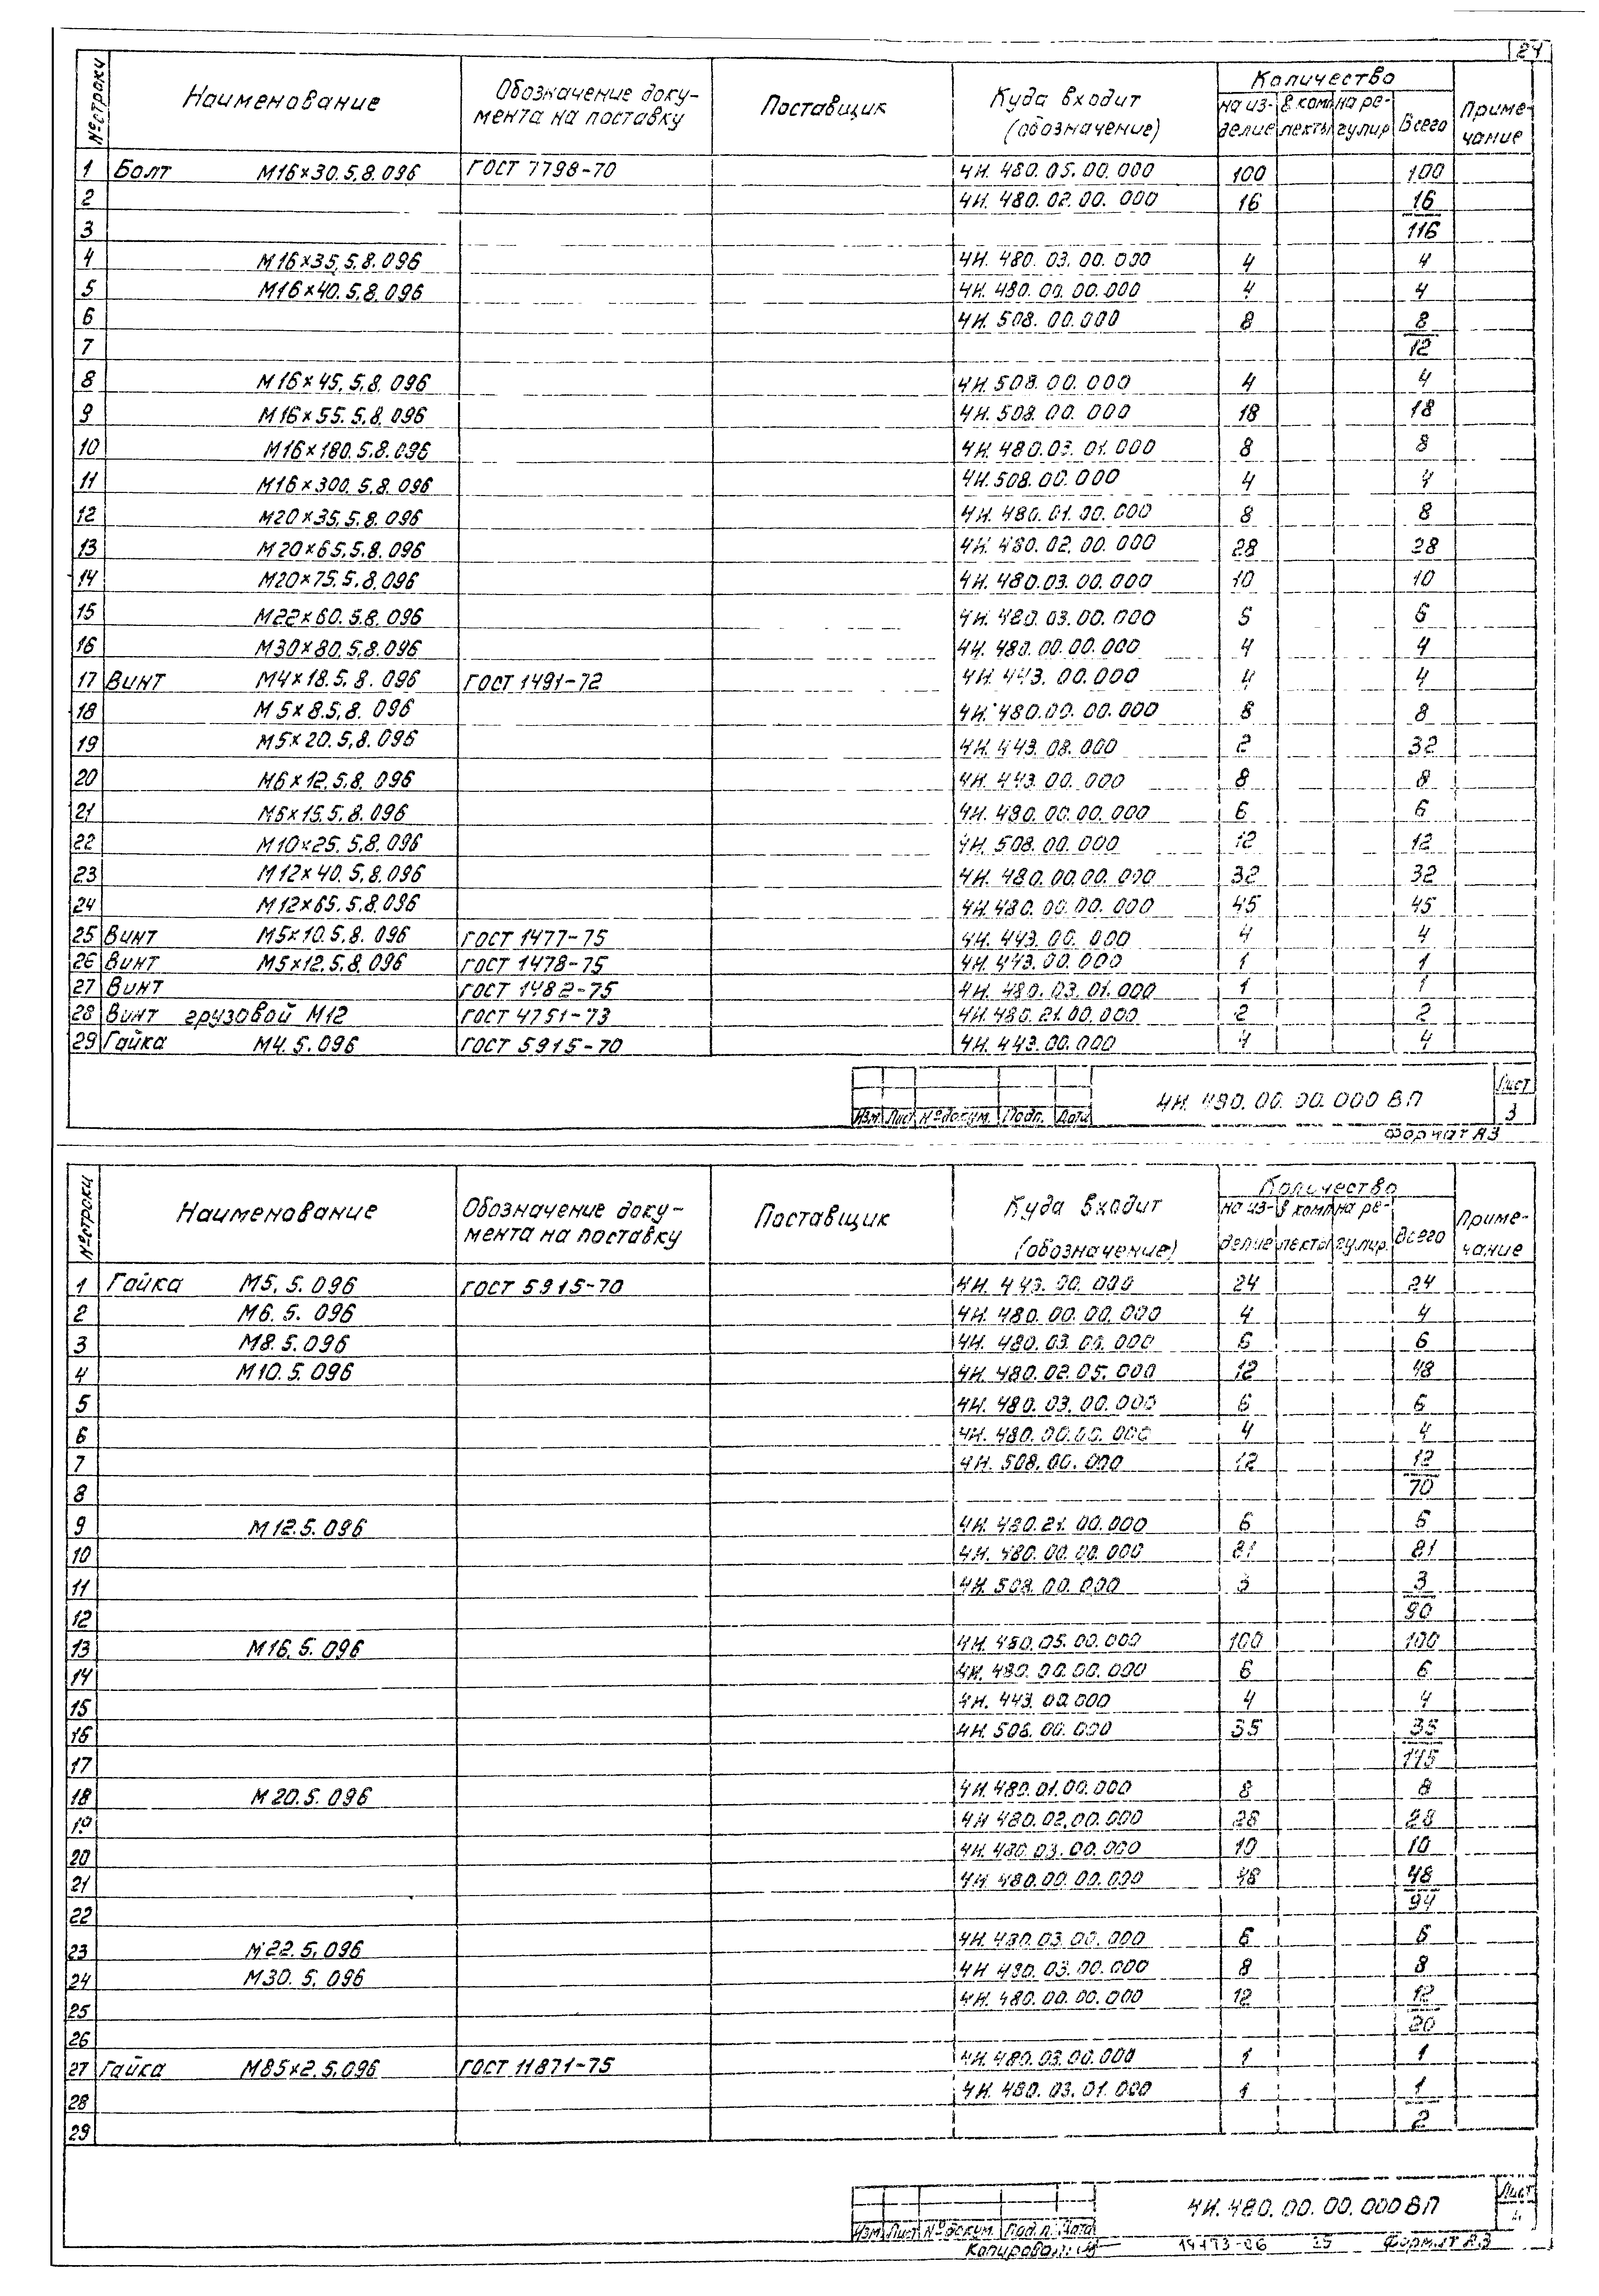 24
№ строки Наименование Обозначение доку-мента на поставку Поставщик Куда входит (обозначение) Количество на из-делие в комп-лекты на ре-гулир. Всего Приме-чание
1 Болт М16×30.5,8.096 ГОСТ 7798-70 4И.480.05.00.000 100 100
2 4И.480.02.00.000 16 16
3 116
4 М16×35,5,8.096 4И.480.03.00.000 4 4
5 М16×40.5,8.096 4И.480.00.00.000 4 4
6 4И.508.00.000 8 8
7 12
8 М16×45.5,8.096 4И.508.00.000 4 4
9 М16×55.5,8.096 4И.508.00.000 18 18
10 М16×180.5.8.096 4И.480.03.01.000 8 8
11 М16×300.5.8.096 4И.508.00.000 4 4
12 М20×35,5,8.096 4И.480.01.00.000 8 8
13 М20×65,5,8.096 4И.480.02.00.000 28 28
14 М20×75.5,8.096 4И.480.03.00.000 10 10
15 М22×60.5.8.096 4И.480.03.00.000 6
16 М30×80,5,8.096 4И.480.00.00.000 4 4
17 Винт М4×18.5,8.096 ГОСТ 1491-72 4И.443.00.000 4 4
18 М5×8.5,8.096 4И.480.00.00.000 8 8
19 М5×20.5,8.096 4И.443.08.000 2 32
20 М6×12.5,8.096 4И.443.00.000 8 8
21 М6×15,5,8.096 4И.480.00.00.000 6 6
22 М10×25.5,8.096 4И.508.00.000 12 12
23 М12×40.5,8.096 4И.480.00.00.000 32 32
24 М12×65.5.8.096 4И.480.00.00.000 45 45
25 Винт М5×10.5,8.096 ГОСТ 1477-75 4И.443.00.000 4 4
26 Винт М5×12,5,8.096 ГОСТ 1478-75 4И.443.00.000 1 1
27 Винт ГОСТ 1482-75 4И.480.03.01.000 1 1
28 Винт грузовой М12 ГОСТ 4751-73 4И.480.21.00.000 2 2
29 Гайка М4.5.096 ГОСТ 5915-70 4И.443.00.000 4 4
4И.480.00.00.000 ВП Лист
Изм. Лист № докум. Подп. Дата 3
Формат А3
№ строки Наименование Обозначение доку-мента на поставку Поставщик Куда входит (обозначение) Количество на из-делие в комп-лекты на ре-гулир. Всего Приме-чание
1 Гайка М5,5.096 ГОСТ 5915-70 4И.443.00.000 24 24
2 М6.5.096 4И.480.00.00.000 4 4
3 М8.5.096 4И.480.03.00.000 6 6
4 М10.5.096 4И.480.02.05.000 12 48
5 4И.480.03.00.000 6 6
6 4И.480.00.00.000 4 4
7 4И.508.00.000 12 12
8 70
9 М12.5.096 4И.480.21.00.000 6 6
10 4И.480.00.00.000 81 81
11 4И.508.00.000 3 3
12 90
13 М16,5.096 4И.480.05.00.000 100 100
14 4И.480.00.00.000 6 6
15 4И.443.00.000 4 4
16 4И.508.00.000 35 35
17 145
18 М20.5.096 4И.480.01.00.000 8 8
19 4И.480.02.00.000 28 28
20 4И.480.03.00.000 10 10
21 4И.480.00.00.000 48 48
22 94
23 М22.5,096 4И.480.03.00.000 6 6
24 М30.5,096 4И.480.03.00.000 8 8
25 4И.480.00.00.000 12 12
26 20
27 Гайка М85×2.5.096 ГОСТ 11871-75 4И.480.03.00.000 1 1
28 4И.480.03.01.000 1 1
29 2
4И.480.00.00.000 ВП Лист
Изм. Лист № докум. Подп. Дата 4
Копировал 25 Формат А3